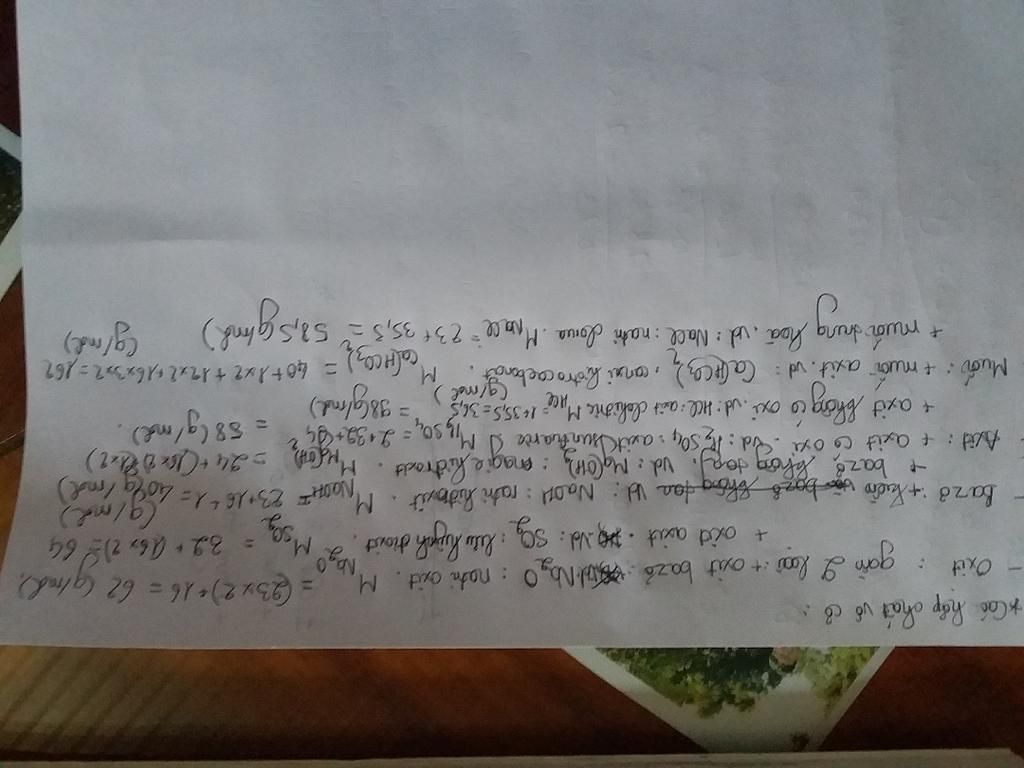 * Các hợp chất vô cơ :
- Oxit : gồm 2 loại : + oxit bazơ : vd Na2O : natri oxit. M Na2O = (23 x 2) + 16 = 62 (g/mol)
+ oxit axit . vd : SO2 : lưu huỳnh đioxit. M SO2 = 32 + (16 x 2) = 64 (g/mol)
- Bazơ : + kiềm Vd : NaOH : natri hiđroxit . M NaOH = 23 + 16 + 1 = 40 (g/mol)
+ bazơ không tan. vd : Mg(OH)2 : magie hiđroxit . M Mg(OH)2 = 24 + (16 x 2) + (1 x 2) = 58 (g/mol).
- Axit : + axit có oxi . Vd : H2SO4 : axit sunfuric M H2SO4 = 2 + 32 + 64 = 98 (g/mol)
+ axit không có oxi . vd : HCl : axit clohiđric M HCl = 1 + 35,5 = 36,5 (g/mol)
- Muối : + muối axit . vd : Ca(HCO3)2 , canxi hiđrocacbonat . M Ca(HCO3)2 = 40 + 1 x 2 + 12 x 2 + 16 x 3 x 2 = 162 (g/mol)
+ muối trung hoà . vd : NaCl : natri clorua . M NaCl = 23 + 35,5 = 58,5 (g/mol)